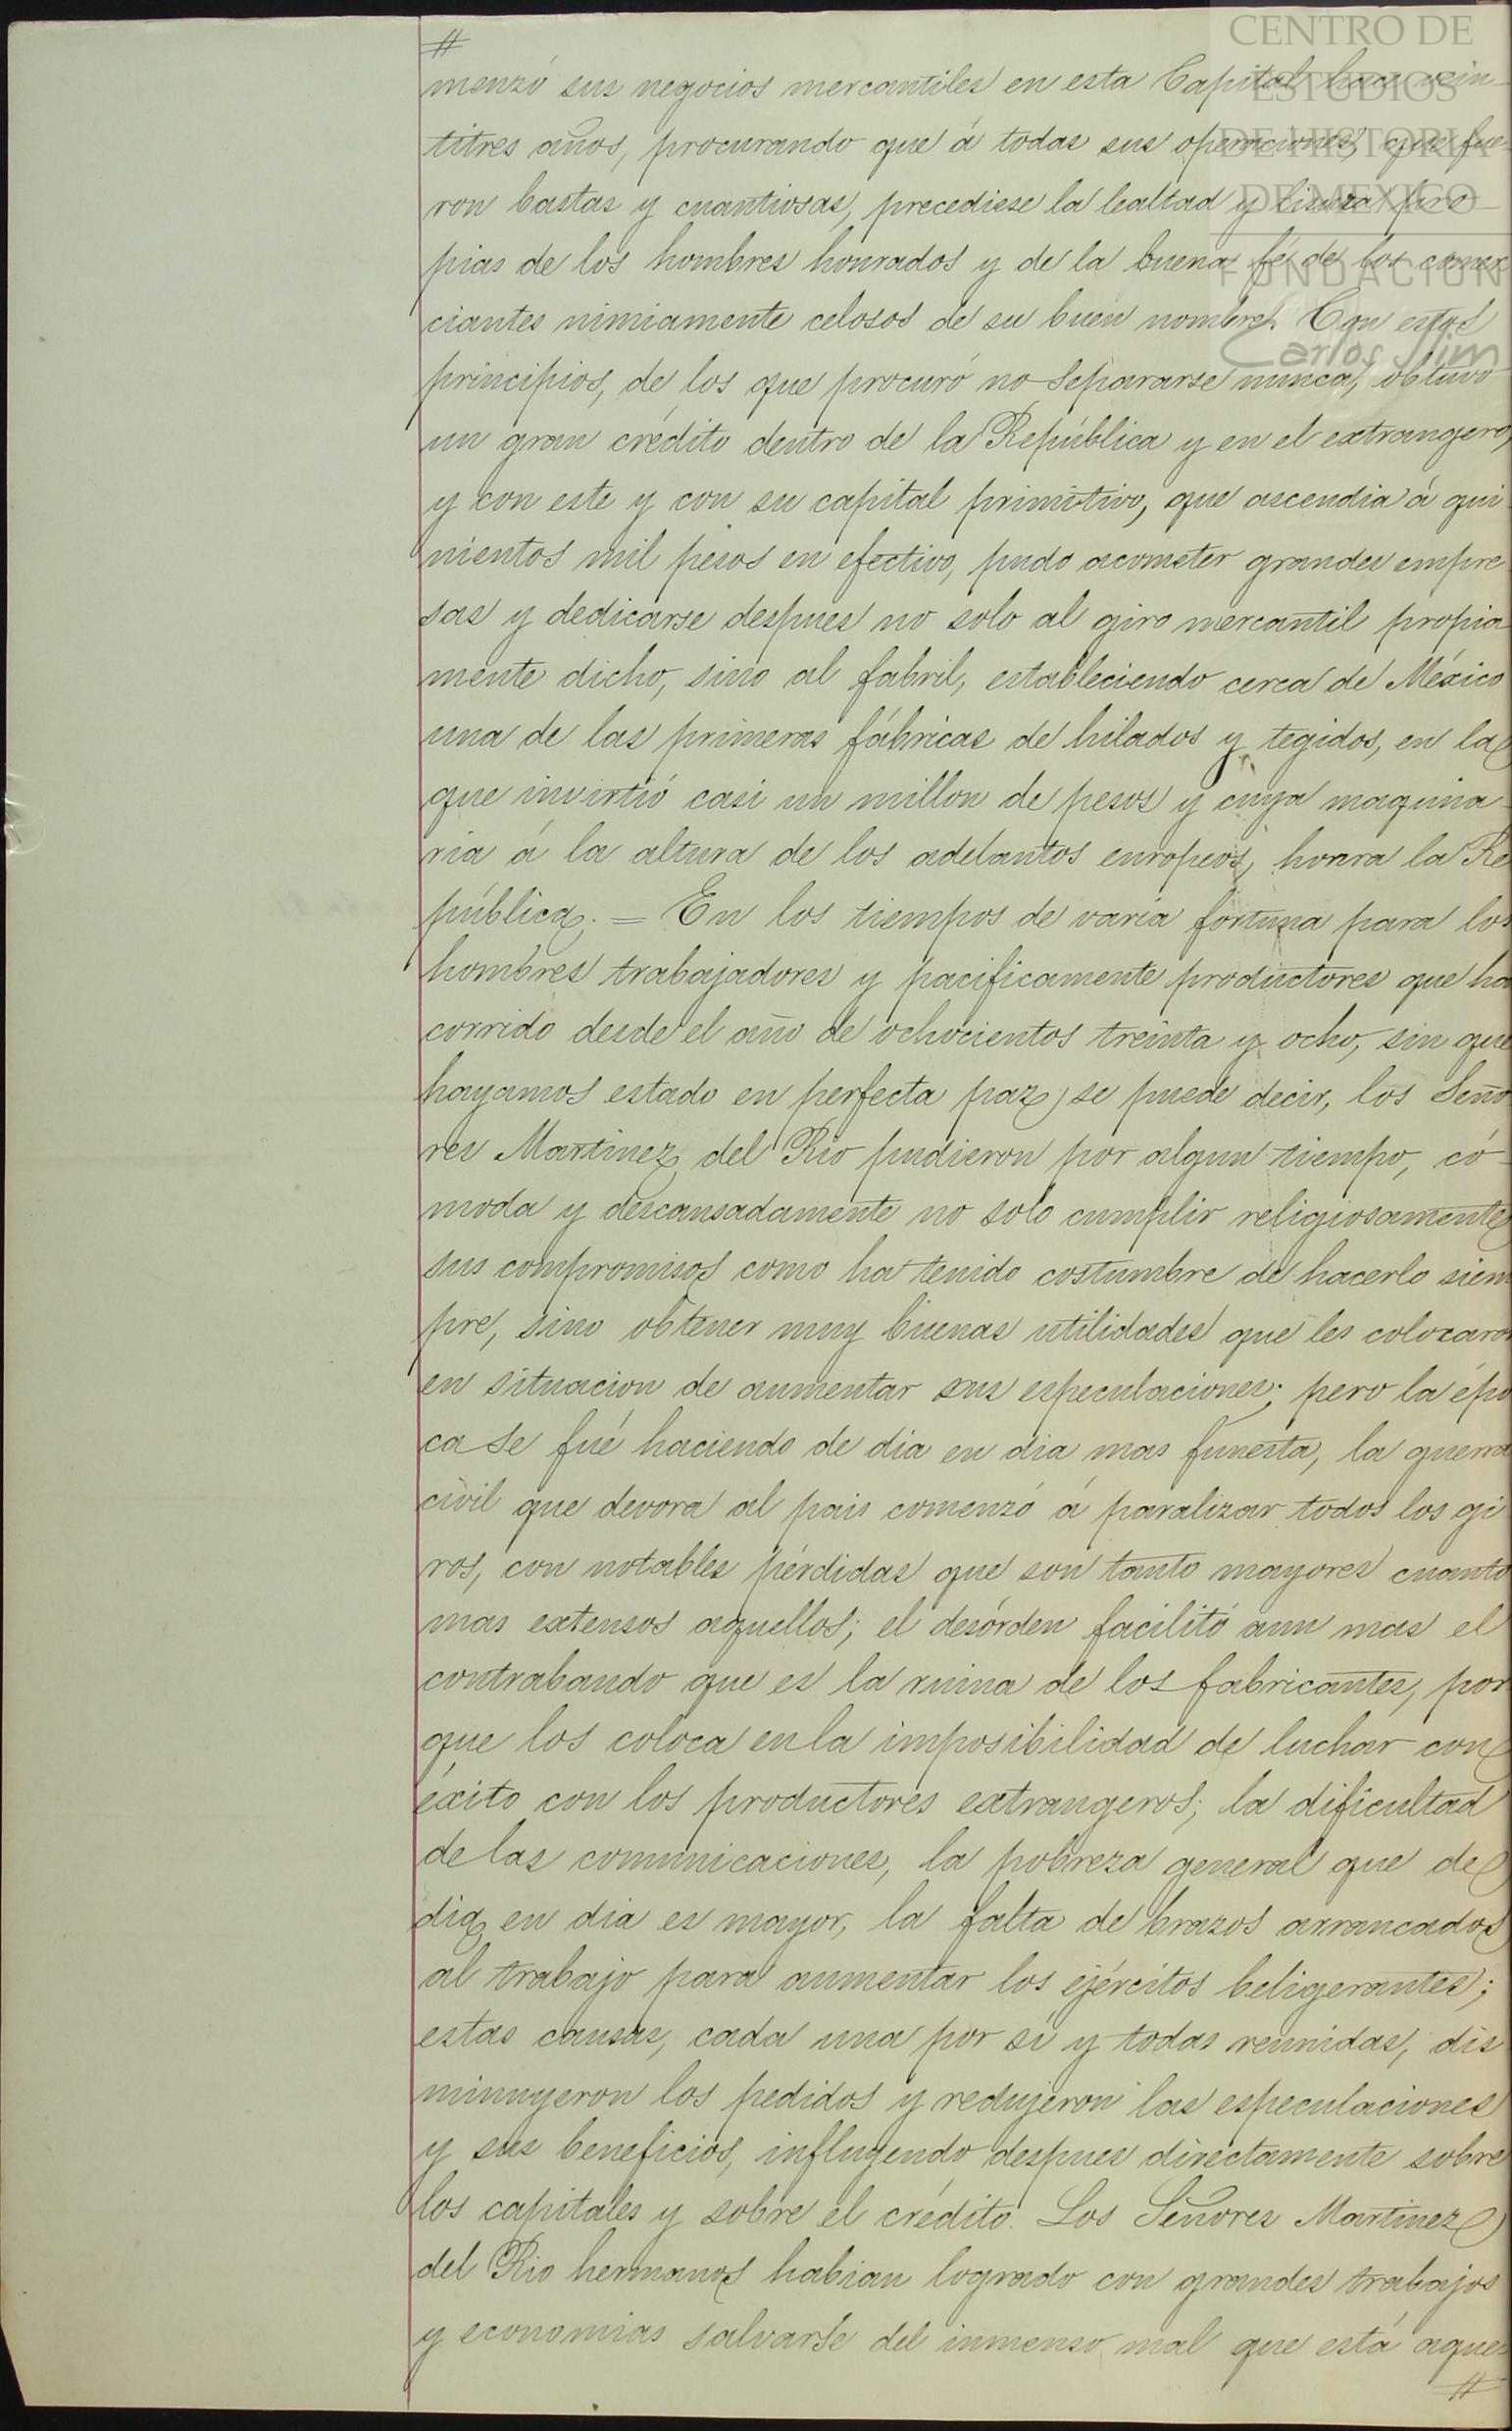 CENTRO DE
ESTUDIOS
DE HISTORIA
DE MEXICO
FUNDACION
Carlos Slim
#
menzó sus negocios mercantiles en esta Capital hace vein-
titres años, procurando que á todas sus operaciones, que fue-
ron bastas y cuantiosas, precediese la lealtad y lisura pro-
pias de los hombres honrados y de la buena fé de los comer
ciantes nimiamente celosos de su buen nombre. Con estos
principios, de los que procuró no separarse nunca, obtuvo
un gran crédito dentro de la República y en el extrangero,
y con este y con su capital primitivo, que ascendia á qui
nientos mil pesos en efectivo, pudo acometer grandes empre
sas y dedicarse despues no solo al giro mercantil propia
mente dicho, sino al fabril, estableciendo cerca de México
una de las primeras fábricas de hilados y tegidos, en la
que invirtió casi un millon de pesos y cuya maquina-
ria á la altura de los adelantos europeos, honra la Re
pública. = En los tiempos de varia fortuna para los
hombres trabajadores y pacificamente productores que ha
corrido desde el año de ochocientos treinta y ocho, sin que
hayamos estado en perfecta paz, se puede decir, los Seño
res Martinez del Rio pudieron por algun tiempo, có-
moda y descansadamente no solo cumplir religiosamente
sus compromisos como ha tenido costumbre de hacerlo siem
pre, sino obtener muy buenas utilidades que les colocaron
en situacion de aumentar sus especulaciones; pero la épo
ca se fué haciendo de dia en dia mas funesta, la guerra
civil que devora al pais comenzó á paralizar todos los gi
ros, con notables pérdidas que son tanto mayores cuanto
mas extensos aquellos; el desórden facilitó aun mas el
contrabando que es la ruina de los fabricantes, por
que los coloca en la imposibilidad de luchar con
éxito con los productores extrangeros; la dificultad
de las comunicaciones, la pobreza general que de
dia en dia es mayor, la falta de brazos arrancados
al trabajo para aumentar los ejércitos beligerantes;
estas causas, cada una por sí y todas reunidas, dis
minuyeron los pedidos y redujeron las especulaciones
y sus beneficios, influyendo despues directamente sobre
los capitales y sobre el crédito. Los Señores Martinez
del Rio hermanos habian logrado con grandes trabajos
y economias salvarse del inmenso mal que está aque-
#